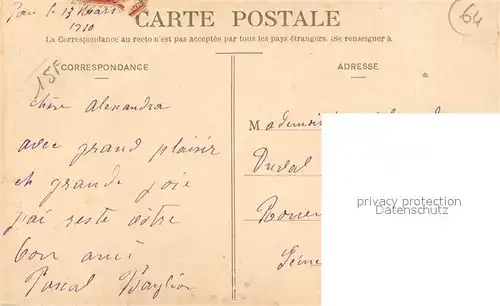 Pau le 13 Mars
1910
64
CARTE POSTALE
La Correspondance au recto n'est pas acceptée par tous les pays étrangers. (Se renseigner à
15F
CORRESPONDANCE
ADRESSE
chère Alexandra
avec grand plaisir
et grande joie
j'ai resté vôtre
bon ami
Pascal
Mademoi
Duval
Rouen
Seine
privacy protection
Datenschutz